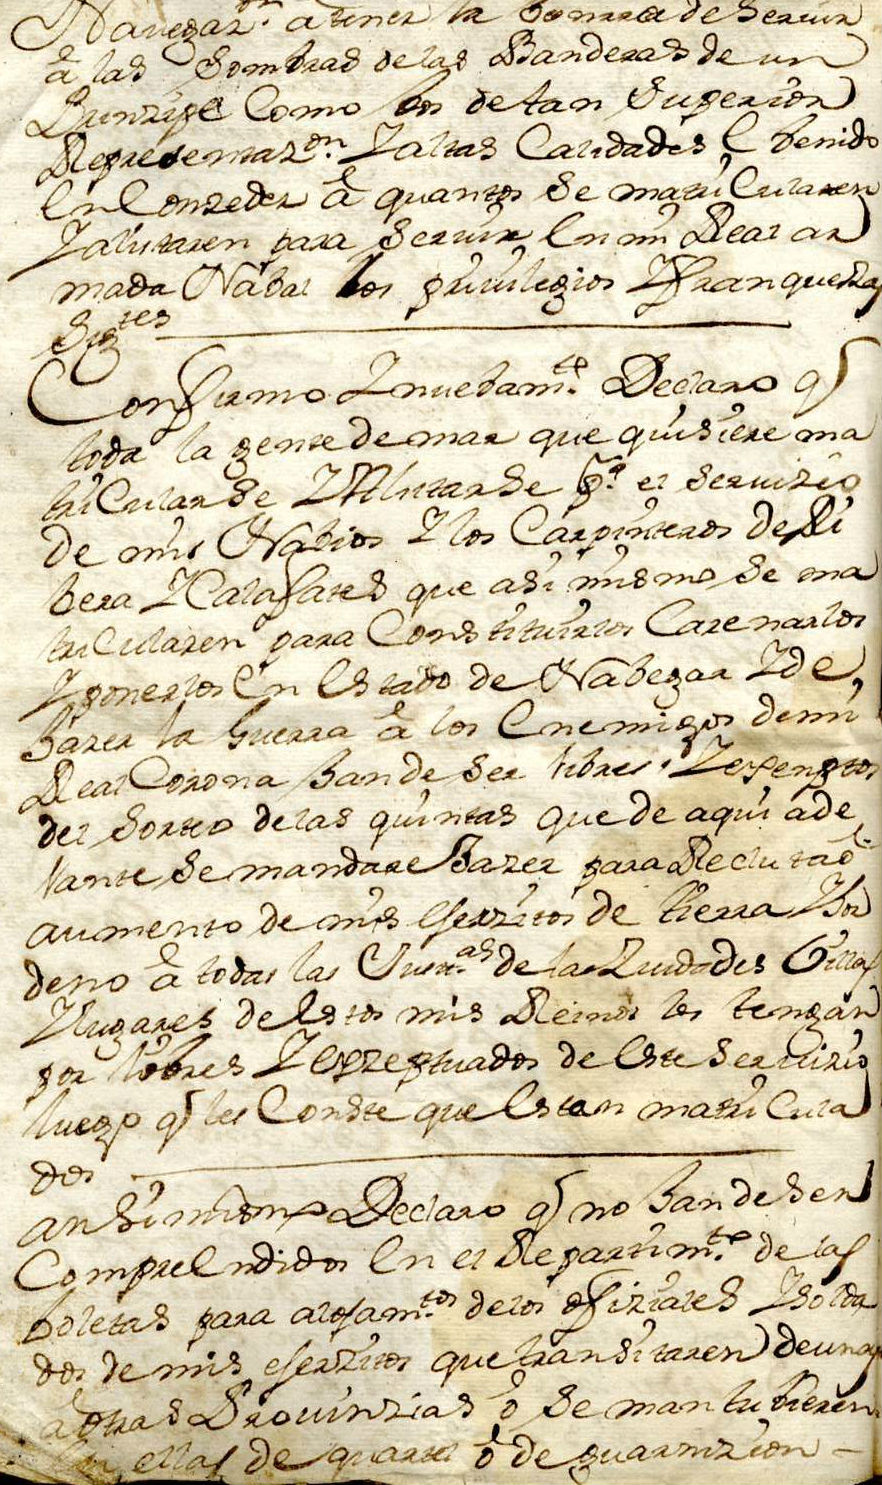 Navegaz.on a tener la honrra de Servir
â las Sombras de las Banderas de un
Prinzipe Como los de tan Superior
Representaz.on Y altas Calidades E benido
En Conzeder â quantos Se matricularen
Y alistaren para Servir En mi Real ar
mada Nabal los privilegios Y franquezas
Sig.tes
Confirmo Y nuebam.te Declaro q
toda la gente de mar que quisiere ma
tricularse Y Alistarse p.a el Servizio
de mis Nabios Y los Carpinteros de Ri
bera Y Calafates que asi mismo Se ma
tricularen para Constituirlos Carenarlos
Y ponerlos En Estado de Nabegar Y de
hazer la Guerra â los Enemigos de mi
Real Corona han de Ser libres Y esenptos
del Sorteo de las quintas que de aqui ade
lante Se mandare hazer para Recluta ô
aumento de mis eserzitos de tierra Y or
deno â todas las Just.as de las Ziudades Villas
Y lugares de Estos mis Reinos los tengan
por libres Y Eszeptuados de Este Servizio
luego q les Conste que Estan matricula
dos
ansi mismo Declaro q no han de Ser
Comprendidos En el Repartim.to de las
boletas para alojam.tos de los ofiziales Y Solda
dos de mis eserzitos que transitaren de unas
â otras Provinzias ô Se mantubieren
En ellas de quartel ô de guarnizion